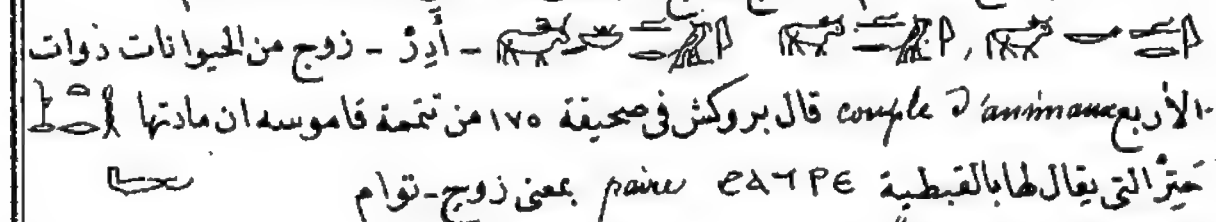 - أَدِرْ - زوج من الحيوانات ذوات
الأربع couple d'animaux قال بروكش فى صحيفة ١٧٥ من تتمة قاموسه ان مادتها
حِتِرْ التى يقال لها بالقبطية ϩⲁⲧⲣⲉ paire بمعنى زوج - توام